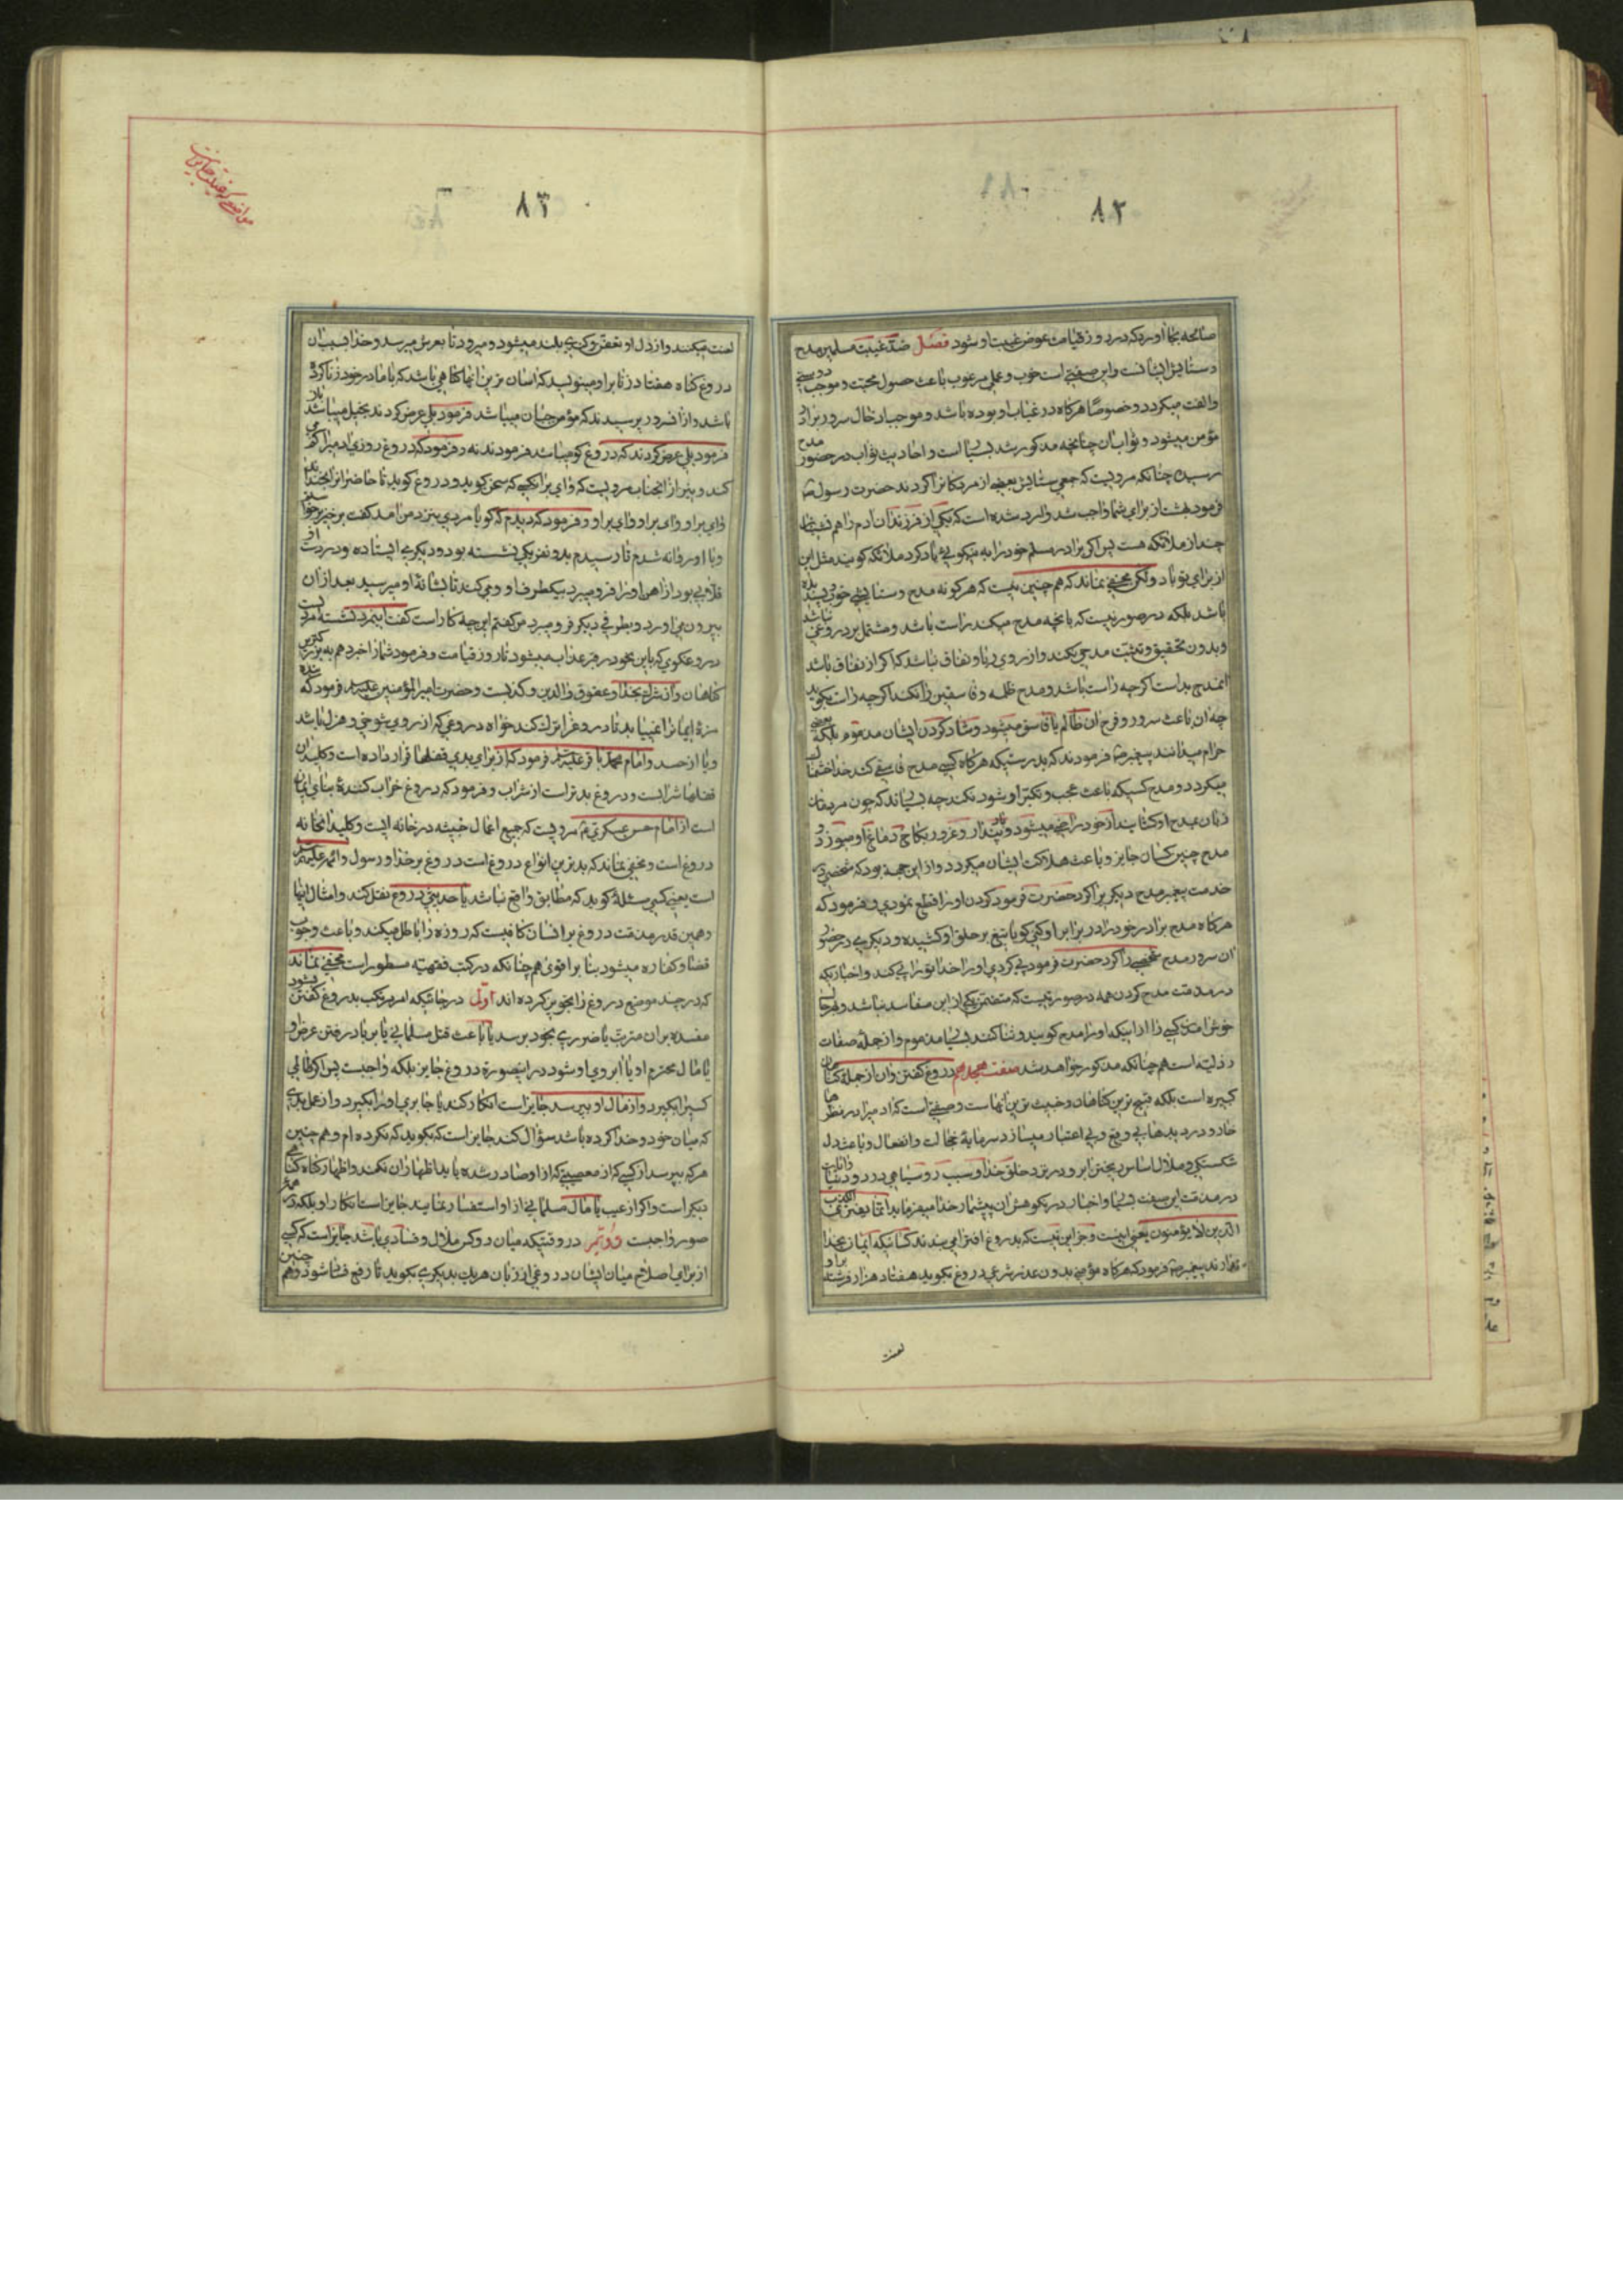 ۸۲
صالحه بجا آورد که در روز قیامت عوض غیبت او شود فصل ضدّ غیبت مسلم مدح
و ستایش ایشانست و این صفتی است خوب و عملی مرغوب باعث حصول محبّت و موجب دوستی
و الفت میکردد و خصوصًا هرکاه در غیاب او بوده باشد و موجب ادخال سرور برادر
مؤمن میشود و ثواب آن چنانچه مذکور شد بسیار است و احادیث ثواب در حضور مدح
رسیده چنانکه مرویست که جمعی ستایش بعضی از مردکانرا کردند حضرت رسول ص
فرمود بهشت از برای شما واجب شد و وارد شده است که یکی از فرزندان آدم را هم نشینان
چند از ملائکه هست پس اکر برادر مسلم خود را به نیکویی یاد کرد ملائکه کویند مثل این
از برای تو باد ولکن مخفی نماند که هم چنین نیست که هر کونه مدح و ستایش خوب و پسندیده
باشد بلکه در صورتیست که بآنچه مدح میکند راست باشد و مشتمل بر دروغی نباشد
و بدون تحقیق و تثبّت مدحی نکند و از روی ریا و نفاق نباشد که اکر از نفاق باشد
آنمدح بد است اکرچه راست باشد و مدح ظلمه و فاسقین را نکند اکرچه راست بکوید
چه آن باعث سرور و فرح آن ظالم یا فاسق میشود و شاد کردن ایشان مذموم بلکه بعضی
حرام میدانند پیغمبر ص فرمودند که بدرستیکه هرکاه کسی مدح فاسقی کند خدا خشمناک
میکردد و مدح کسیکه باعث عجب و تکبّر او شود نکند چه بسیاند که چون مردمان
زبان بمدح او کشایند از خود راضی میشود و باد پندار و غرور بکاخ دماغ او میوزد و
مدح چنین کسان جایز و باعث هلاکت ایشان میکردد و از این جهة بود که شخصی در
خدمت پیغمبر مدح دیکریرا کرد حضرت فرمود کردن او را قطع نمودی و فرمود که
هرکاه مدح برادر خود را در برابر او کنی کویا تیغ بر حلق او کشیده و دیکریی در حضور
آن سرور مدح شخصی را کرد حضرت فرمود پی کردی او را خدا تو را پی کند و اخباریکه
در مذمّت مدح کردن همه در صورتیست که متضمّن یکی از این مفاسد نباشد و هرجا
خوش آمدن کسی را از اینکه او را مدح کویند و ثنا کنند بسیار مذموم و از جملهٔ صفات
رذلیّه است هم چنانکه مذکور خواهد شد صفت هیجدهم دروغ کفتن و آن از جملهٔ کناهان
کبیره است بلکه قبیح ترین کناهان و خبیث ترین آنهاست و صفتی است که آدمی را در نظرها
خوار و در دیدها بی وقع و بی اعتبار میسازد سرمایهٔ خجالت و انفعال و باعث دل
شکستکی و ملال اساس ریختن آبرو در نزد خلق خدا و سبب روسیاهی در دو دنیا
در مذمّت این صفت بسیار و اخبار در نکوهش آن بیشمار خدا میفرماید انّما یفتری الکذب
الّذین لا یؤمنون یعنی اینست و جز این نیست که بدروغ افترا می بندند کسانیکه ایمان بخدا
ندارند پیغمبر ص فرمود که هرکاه مؤمنی بدون عذر شرعی دروغ بکوید هفتاد هزار فرشته بر او
لعنت
۸۳
لعنت میکنند و از دل او تعفّن و کندی بلند میشود و میرود تا بعرش میرسد و خدا بسبب آن
دروغ کناه هفتاد زنا بر او مینویسد که آسان ترین آنها کناهی باشد که با مادر خود زنا کرده
باشد و از آنسرور پرسیدند که مؤمن جبان میباشد فرمود بلی عرض کردند بخیل میباشد
فرمود بلی عرض کردند که دروغ کو میباشد فرمودند نه و فرمود که دروغ روزی آدمی را کم
کند و نیز از آنجناب مرویست که وای بر آنکسی که سخن کوید و دروغ کوید تا حاضرانرا بخنداند
وای بر او وای بر او وای بر او و فرمود که دیدم که کویا مردی بنزد من آمد کفت برخیز برخواستم
و با او روانه شدم تا رسیدم بدو نفر یکی نشسته بود و دیکریی ایستاده و در دست او
قلابی بود از آهن او را فرو میبرد بیکطرف او و می کشد تا بشانهٔ او میرسید بعد از آن
بیرون می آورد و بطرفی دیکر فرو میبرد من کفتم این چه کار است کفت اینمرد نشسته مرد
دروغکوی که باین نحو در قبر عذاب میشود تا روز قیامت و فرمود شما را خبر دهم به بزرکترین
کناهان و آن شرک بخدا و عقوق والدین و کذبست و حضرت امیر المؤمنین علیه السلام فرمود که بنده
مزهٔ ایمانرا نمییابد تا دروغرا ترک کند خواه دروغی که از روی شوخی و هزل باشد
و یا از جد و امام محمّد باقر علیه السلام فرمود که از برای بدی قفلها قرار داده است و کلید آن
قفلها شرابست و دروغ بدتر است از شراب و فرمود که دروغ خراب کنندهٔ بنای ایمان
است از امام حسن عسکری ع مرویست که جمیع اعمال خبیثه در خانه ایست و کلید آنخانه
دروغ است و مخفی نماند که بدترین انواع دروغ است دروغ بر خدا و رسول و ائمه علیهم السلام
است یعنی کسی مسئلهٔ کوید که مطابق واقع نباشد یا حدیثی دروغ نقل کند و امثال اینها
و همین قدر مذمّت دروغ بر انسان کافیست که روزه را باطل میکند و باعث وجوب
قضا و کفّاره میشود بنا بر اقوی هم چنانکه در کتب فقهیّه مسطور است مخفی نماند
که در چند موضع دروغ را تجویز کرده اند اوّل در جائیکه اکر مرتکب بدروغ کفتن نشود
مفسده بر آن مترتّب یا ضرری بخود برسد یا باعث قتل مسلمانی یا بر باد رفتن عرض او
یا مال محترم او یا آبروی او شود در اینصورة دروغ جایز بلکه واجبست پس اکر ظالمی
کسیرا بکیرد و از مال او بپرسد جایز است انکار کند یا جابری او را بکیرد و از عمل بدی
که میان خود و خدا کرده باشد سؤال کند جایز است که بکوید که نکرده ام و هم چنین
هر که بپرسد از کسی که از معصیتی که از او صادر شده باید اظهار آن نکند و اظهار کناه کناهی
دیکر است و اکر از عیب یا مال مسلمانی از او استفسار نمایند جایز است انکار او بلکه در
صور واجبست دوّیّم در وقتیکه میان دو کس ملال و فسادی باشد جایز است که کسی
از برای اصلاح میان ایشان دروغی از زبان هر یک بدیکری بکوید تا رفع فساد شود و هم چنین